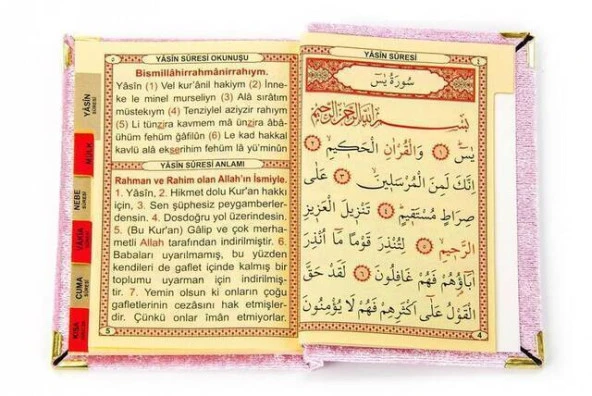 YÂSİN SÛRESİ OKUNUŞU
Bismillâhirrahmânirrahıym.
Yâsîn (1) Vel kur'ânil hakiym (2) İnne-
ke le minel murseliyn (3) Alâ sırâtım
müstekıym (4) Tenziylel aziyzir rahıym
(5) Li tünzira kavmem mâ ünzira âbâ-
ühüm fehüm ğâfilûn (6) Le kad hakkal
kavlü alâ ekserihim fehüm lâ yü'minûn
YÂSİN SÛRESİ ANLAMI
Rahman ve Rahim olan Allah'ın İsmiyle.
1. Yâsîn, 2. Hikmet dolu Kur'an hakkı
için, 3. Sen şüphesiz peygamberler-
densin. 4. Dosdoğru yol üzerindesin.
5. (Bu Kur'an) Gâlip ve çok merha-
metli Allah tarafından indirilmiştir. 6.
Babaları uyarılmamış, bu yüzden
kendileri de gaflet içinde kalmış bir
toplumu uyarman için indirilmiş-
tir. 7. Yemin olsun ki onların çoğu
gafletlerinin cezasını hak etmişler-
dir. Çünkü onlar iman etmiyorlar.
5
YÂSİN SÛRESİ
MÜLK
NEBE SÛRESİ
VÂKIA
CUMA SÛRESİ
KISA
YÂSİN SÛRESİ
سُورَةُ يٰسٓ
بِسْمِ اللّٰهِ الرَّحْمٰنِ الرَّحِيمِ
يٰسٓ ١ وَالْقُرْاٰنِ الْحَكِيمِ ٢
اِنَّكَ لَمِنَ الْمُرْسَلِينَ ٣ عَلٰى
صِرَاطٍ مُسْتَقِيمٍ ٤ تَنْزِيلَ الْعَزِيزِ
الرَّحِيمِ ٥ لِتُنْذِرَ قَوْمًا مَٓا اُنْذِرَ
اٰبَٓاؤُ۬هُمْ فَهُمْ غَافِلُونَ ٦ لَقَدْ حَقَّ
الْقَوْلُ عَلٰٓى اَكْثَرِهِمْ فَهُمْ لَا يُؤْمِنُونَ
4